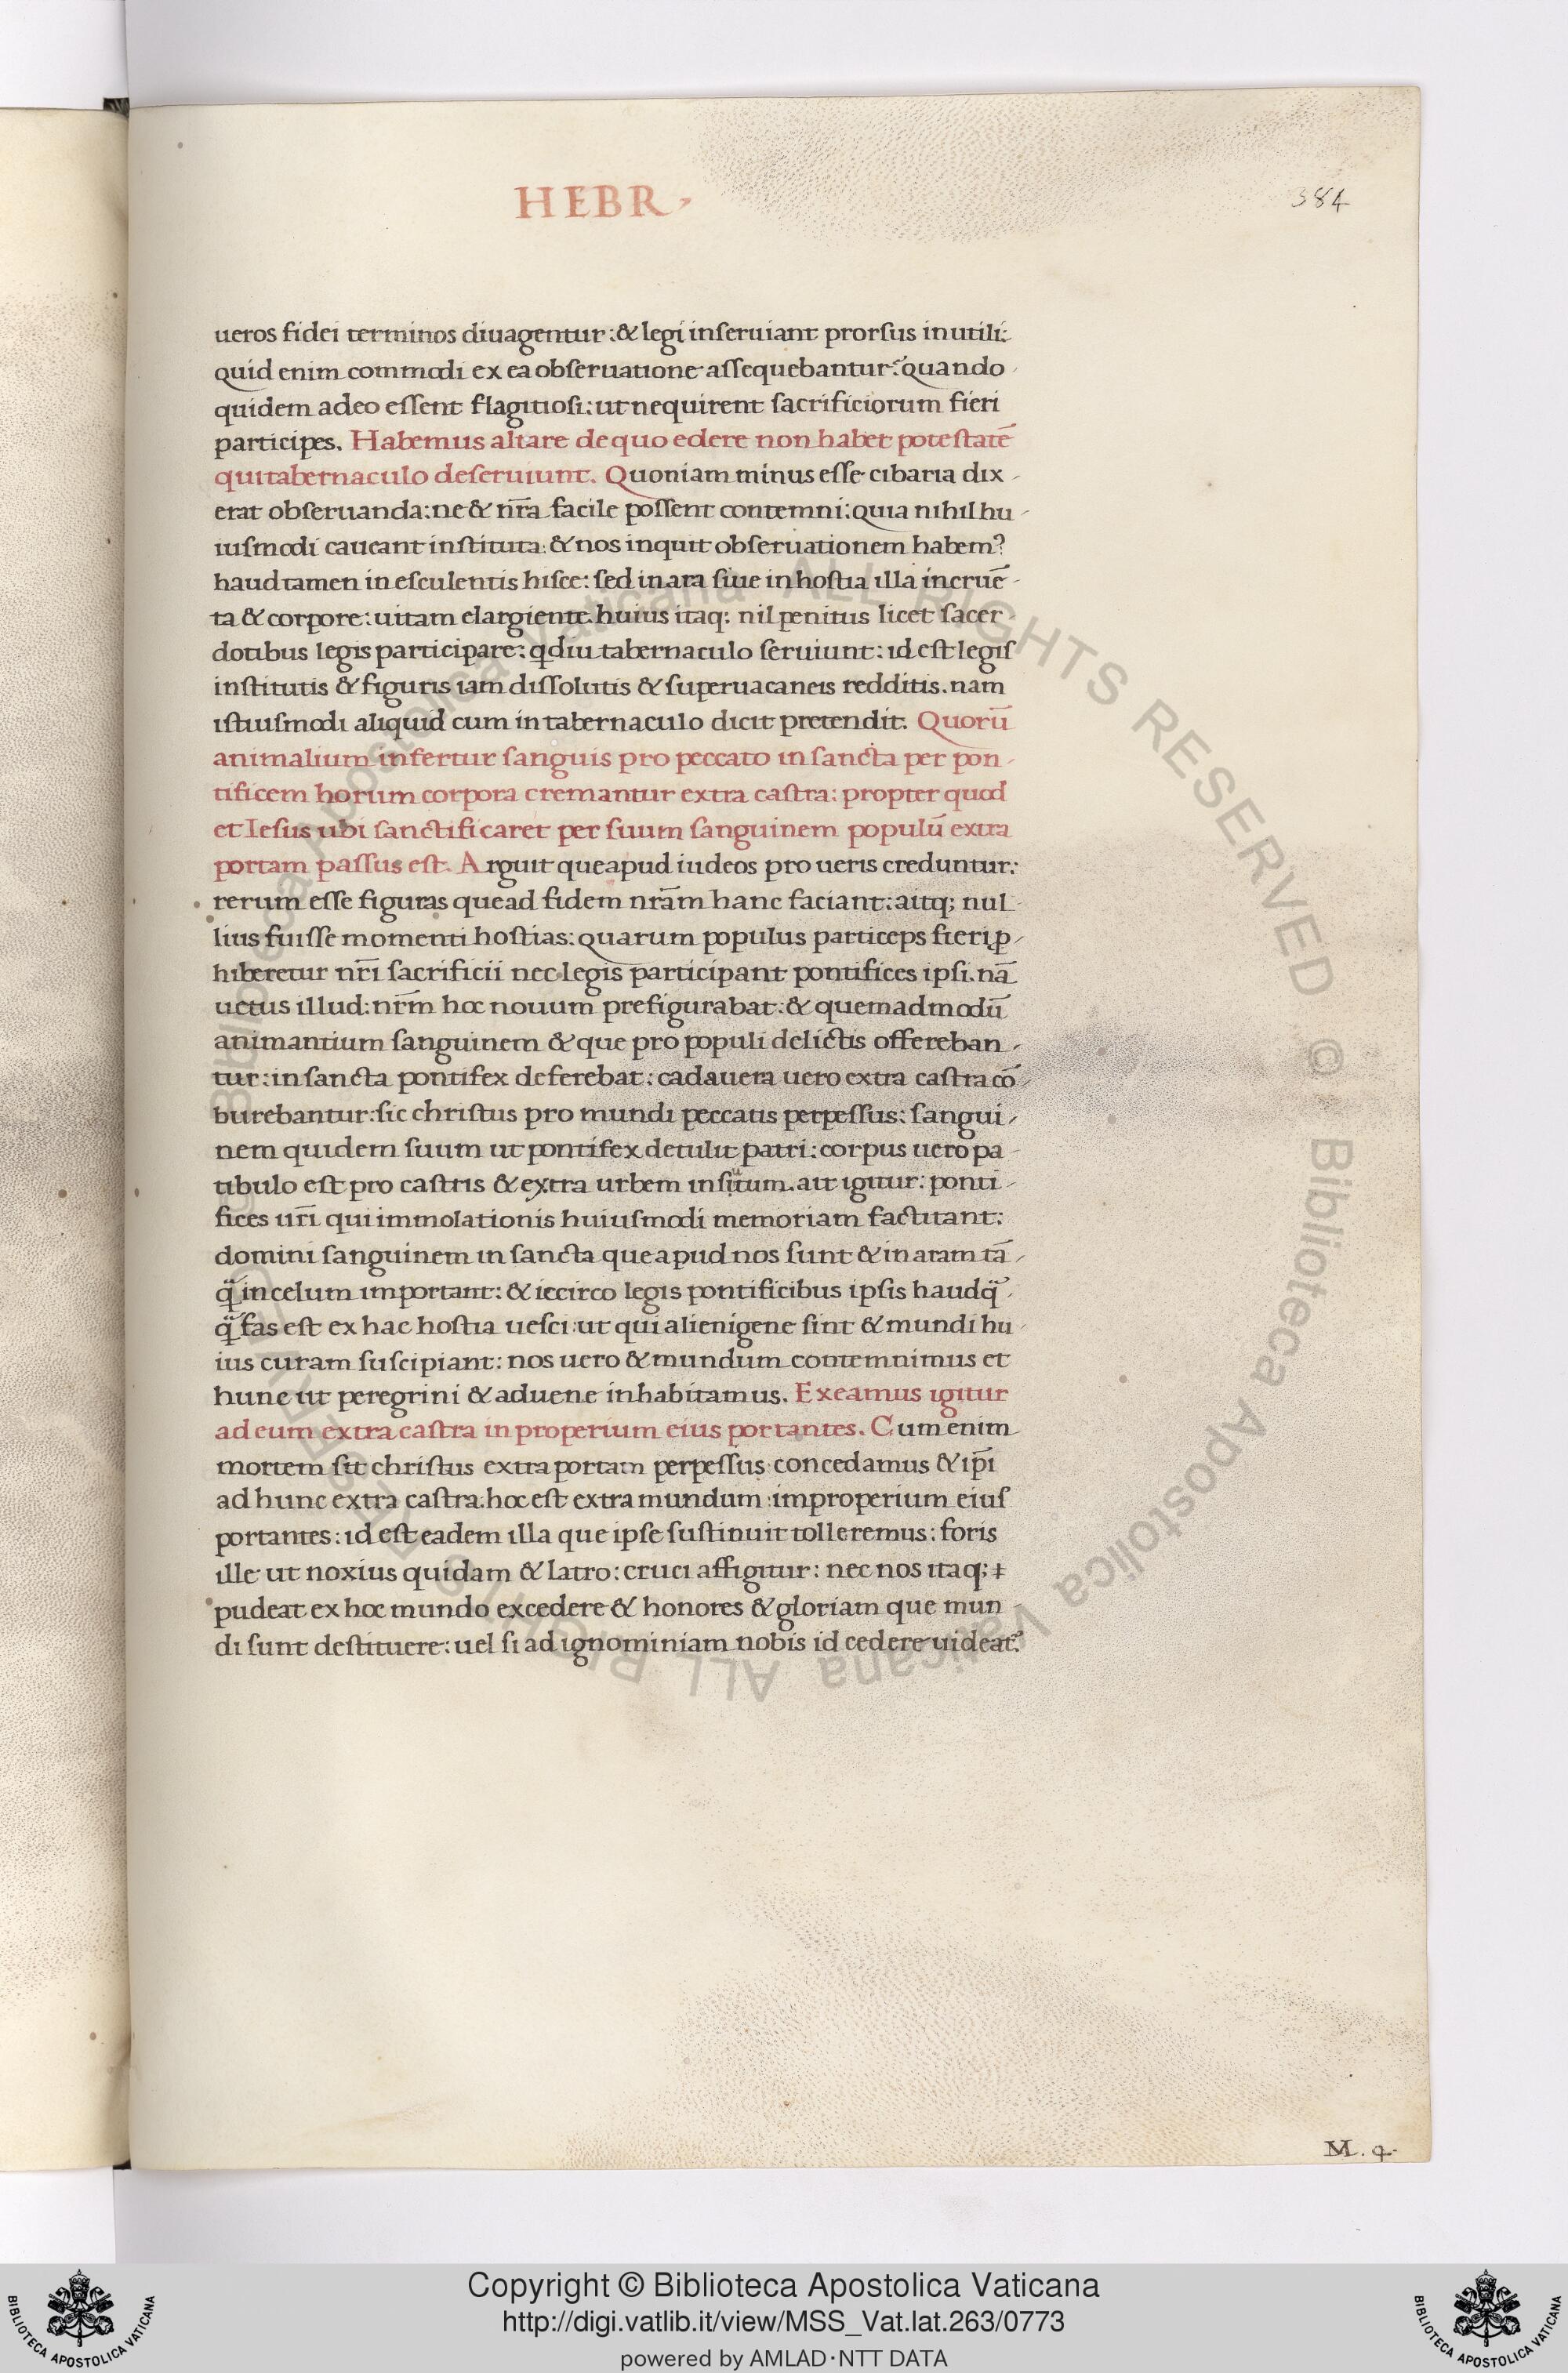 HEBR.
384
ueros fidei terminos diuagentur: & legi inseruiant prorsus inutili:
quid enim commodi ex ea obseruatione assequebantur? quando
quidem adeo essent flagitiosi: ut nequirent sacrificiorum fieri
participes. Habemus altare de quo edere non habet potestatē
qui tabernaculo deseruiunt. Quoniam minus esse cibaria dix
erat obseruanda: ne & nr̄a facile possent contemni: quia nihil hu
iusmodi caueant instituta: & nos inquit obseruationem habem?
haud tamen in esculentis hisce: sed in ara siue in hostia illa incruē
ta & corpore: uitam elargiente. huius itaq: nil penitus licet sacer
dotibus legis participare: qdiu tabernaculo seruiunt: id est legis
institutis & figuris iam dissolutis & superuacaneis redditis. nam
istiusmodi aliquid cum in tabernaculo dicit pretendit. Quorū
animalium infertur sanguis pro peccato in sancta per pon
tificem horum corpora cremantur extra castra: propter quod
et Iesus ubi sanctificaret per suum sanguinem populū extra
portam passus est. Arguit que apud iudeos pro ueris creduntur:
rerum esse figuras que ad fidem nrām hanc faciant: aitq; nul
lius fuisse momenti hostias: quarum populus particeps fieri ꝓ
hiberetur nrī sacrificii nec legis participant pontifices ipsi. nā
uetus illud: nrm̄ hoc nouum prefigurabat: & quemadmodū
animantium sanguinem & que pro populi delictis offereban
tur: in sancta pontifex deferebat: cadauera uero extra castra cō
burebantur: sic christus pro mundi peccatis perpessus: sangui
nem quidem suum ut pontifex detulit patri: corpus uero pa
tibulo est pro castris & extra urbem insitum. ait igitur: ponti
fices urī qui immolationis huiusmodi memoriam factitant:
domini sanguinem in sancta que apud nos sunt & in aram tā
q̈ in celum important: & iccirco legis pontificibus ipsis haudq̈
q̈ fas est ex hac hostia uesci: ut qui alienigene sint & mundi hu
ius curam suscipiant: nos uero & mundum contemnimus et
hunc ut peregrini & aduene inhabitamus. Exeamus igitur
ad eum extra castra in properium eius portantes. Cum enim
mortem sit christus extra portam perpessus: concedamus & ip̄i
ad hunc extra castra: hoc est extra mundum: improperium eius
portantes: id est eadem illa que ipse sustinuit tolleremus: foris
ille ut noxius quidam & latro: cruci affigitur: nec nos itaq;
pudeat ex hoc mundo excedere & honores & gloriam que mun
di sunt destituere: uel si ad ignominiam nobis id cedere uideat?
M. 4.
© Biblioteca Apostolica Vaticana ALL RIGHTS RESERVED © Biblioteca Apostolica Vaticana ALL RIGHTS RESERVED
Copyright © Biblioteca Apostolica Vaticana
http://digi.vatlib.it/view/MSS_Vat.lat.263/0773
powered by AMLAD·NTT DATA
BIBLIOTECA APOSTOLICA VATICANA
BIBLIOTECA APOSTOLICA VATICANA